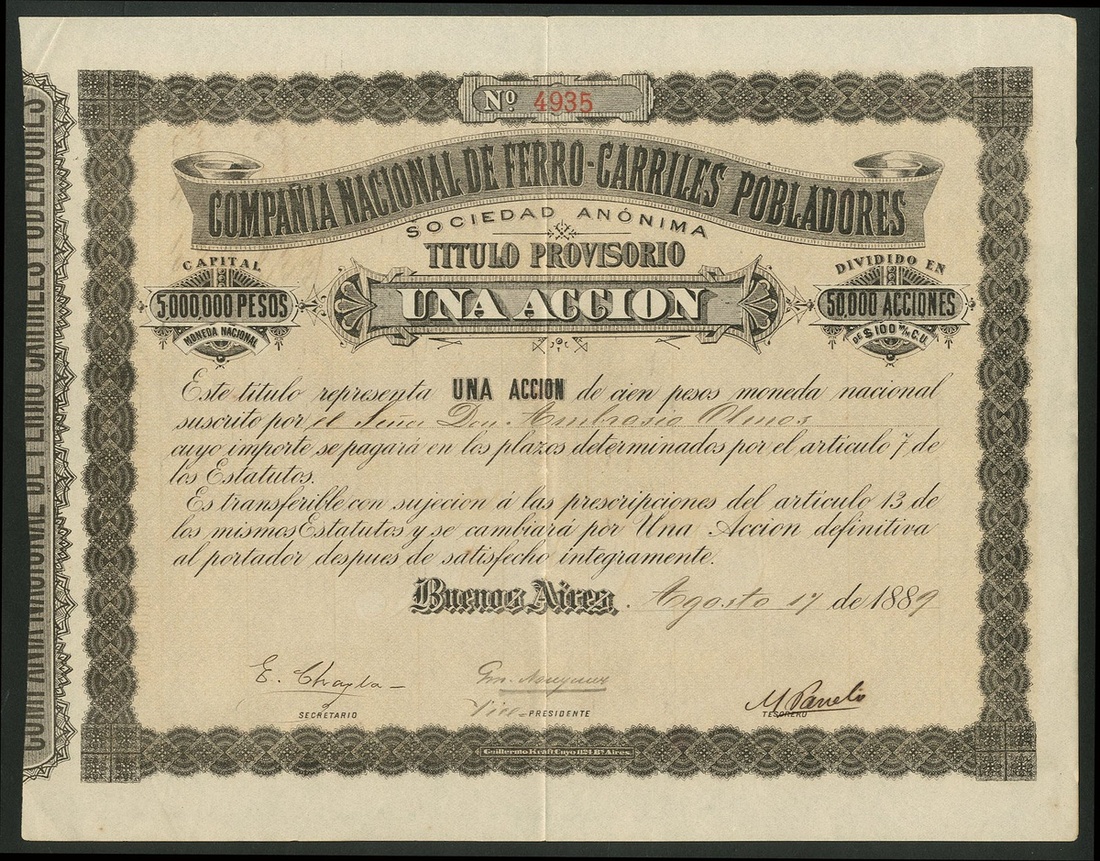 COMPAÑIA NACIONAL DE FERRO-CARRILES POBLADORES
Nº 4935
COMPAÑIA NACIONAL DE FERRO-CARRILES POBLADORES
SOCIEDAD ANÓNIMA
TITULO PROVISORIO
CAPITAL
5.000,000 PESOS
MONEDA NACIONAL
UNA ACCION
DIVIDIDO EN
50,000 ACCIONES
DE $ 100 m/n C.U.
Este título representa UNA ACCION de cien pesos moneda nacional
suscrito por el Señor Don Ambrosio Olmos
cuyo importe se pagará en los plazos determinados por el artículo 7 de
los Estatutos.
Es transferible con sujecion á las prescripciones del artículo 13 de
los mismos Estatutos y se cambiará por Una Accion definitiva
al portador despues de satisfecho integramente.
Buenos Aires, Agosto 17 de 1889
SECRETARIO
Vice-PRESIDENTE
TESORERO
Guillermo Kraft Cuyo 1124 Bs. Aires.